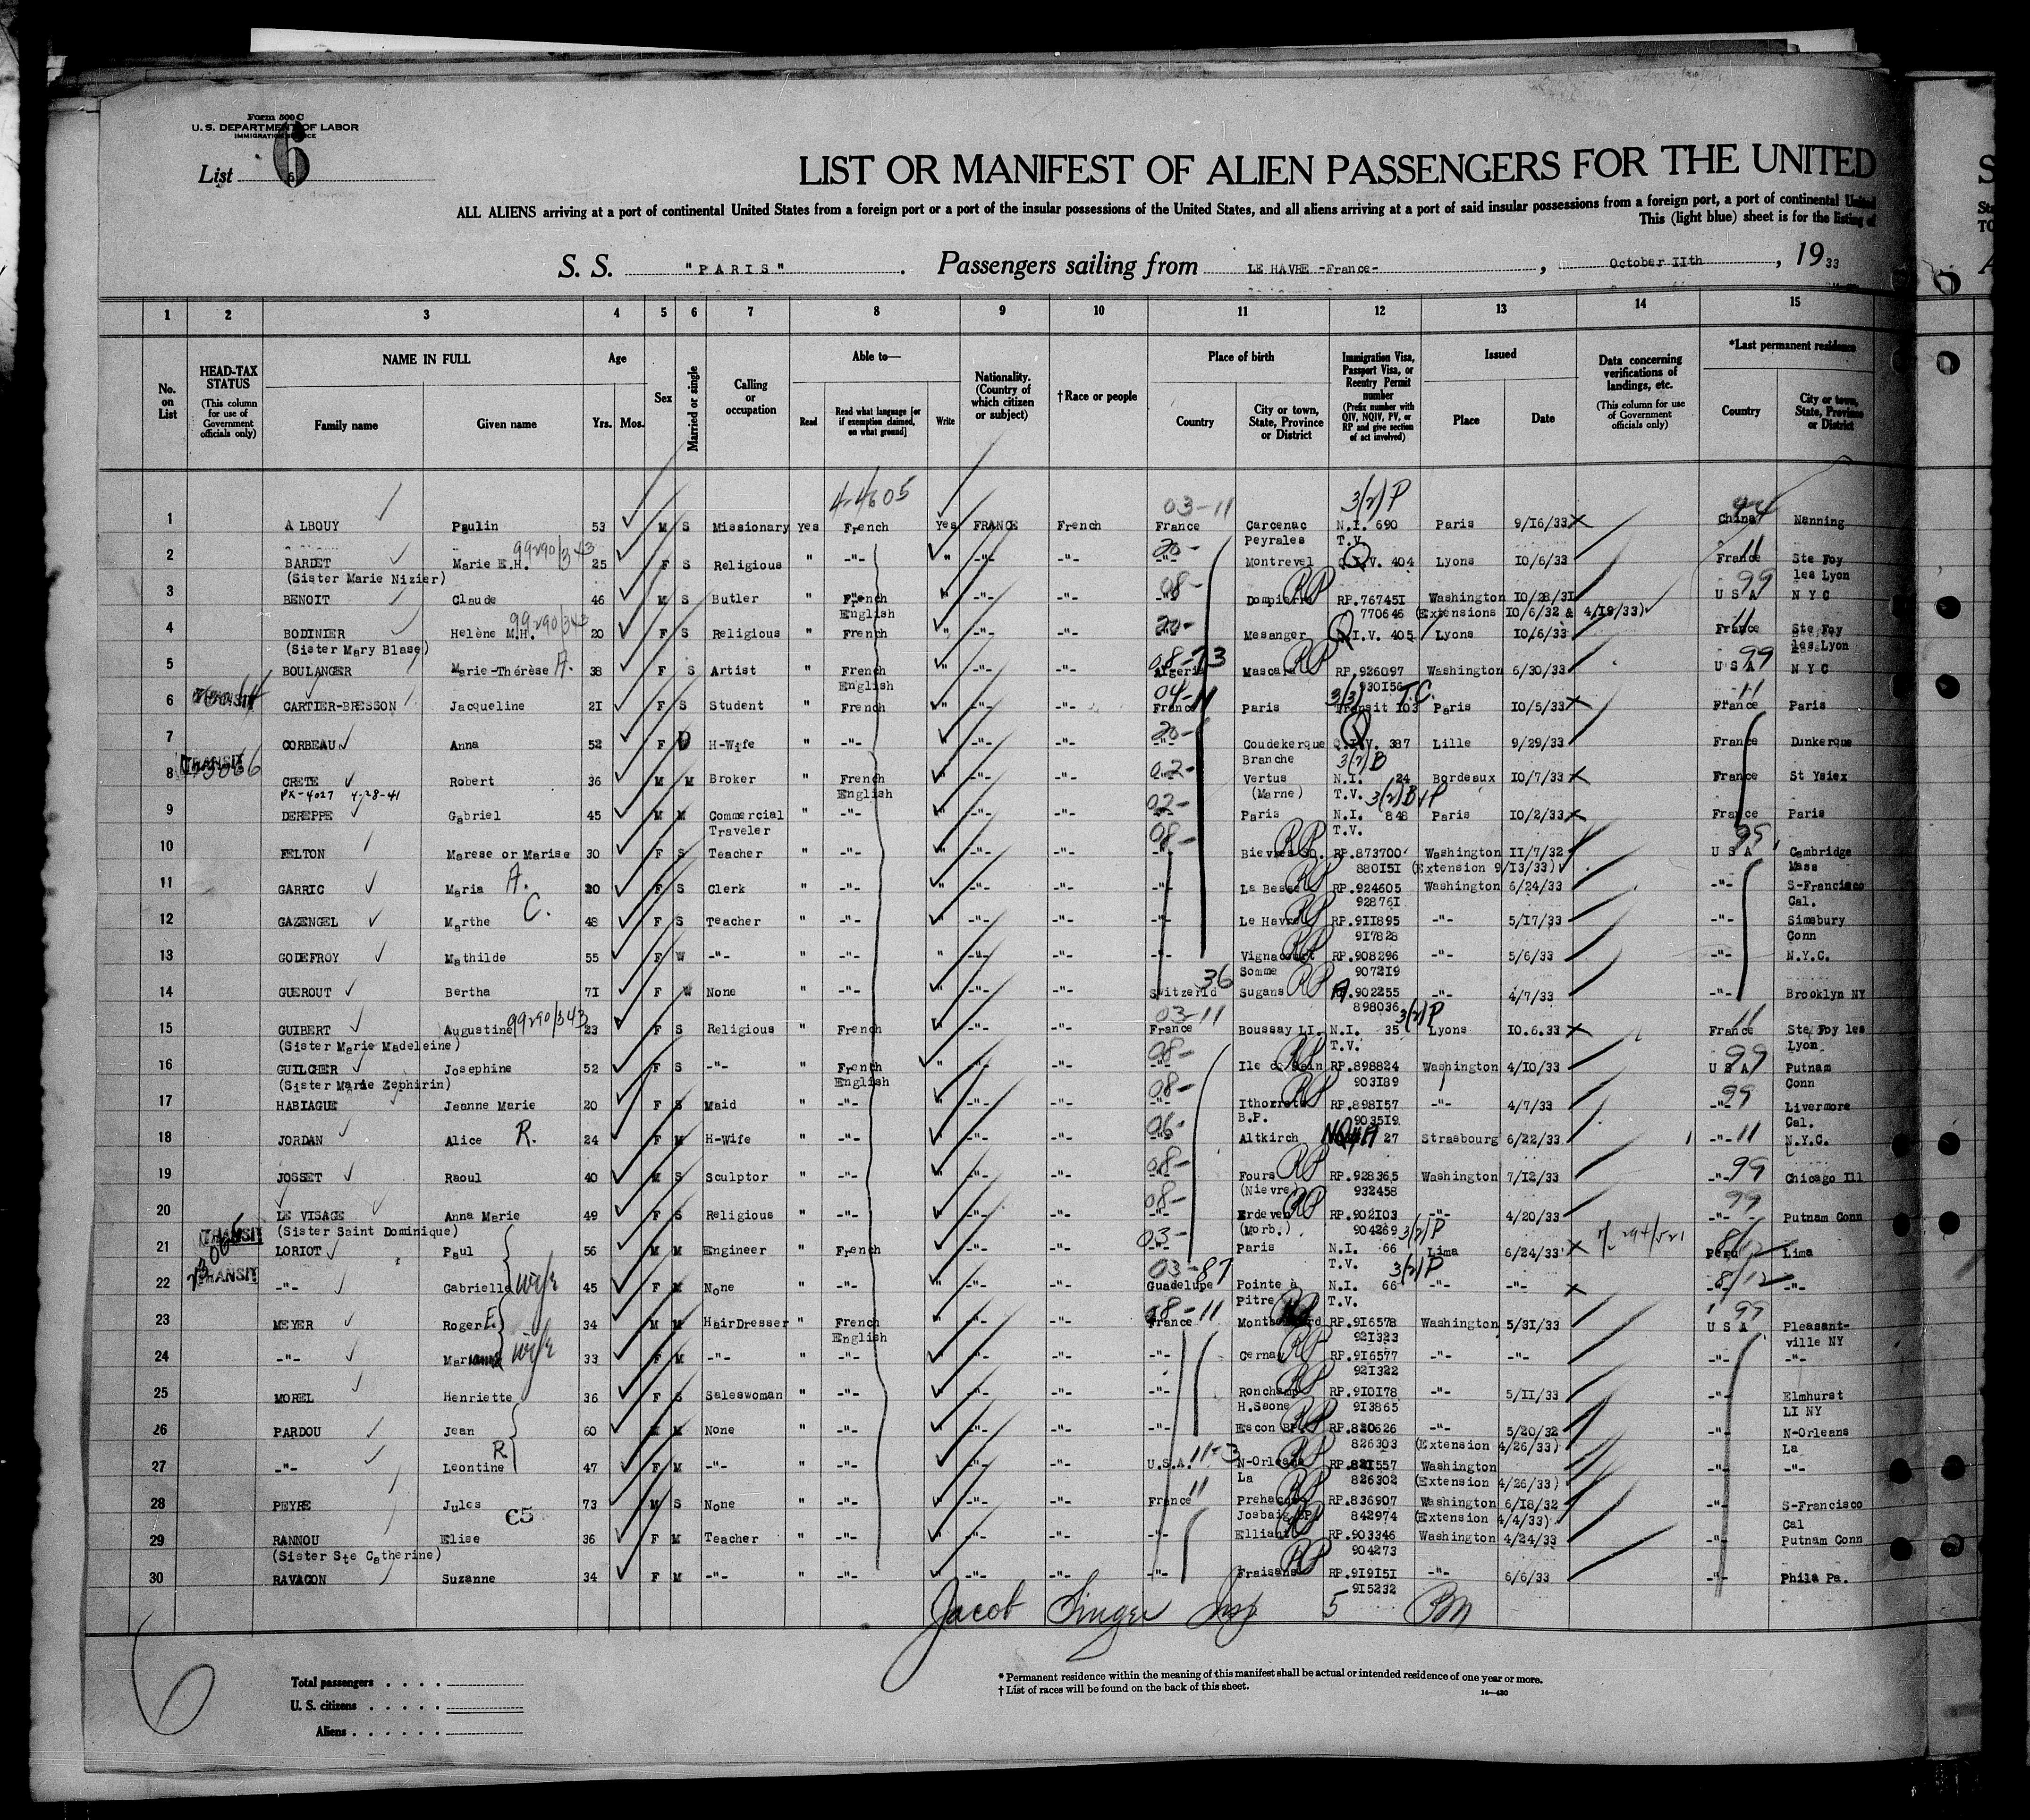 Form 500 C
U. S. DEPARTMENT OF LABOR
IMMIGRATION SERVICE
List 6
LIST OR MANIFEST OF ALIEN PASSENGERS FOR THE UNITED
ALL ALIENS arriving at a port of continental United States from a foreign port or a port of the insular possessions of the United States, and all aliens arriving at a port of said insular possessions from a foreign port, a port of continental United
This (light blue) sheet is for the listing of
S. S. "PARIS" . Passengers sailing from LE HAVRE -France- , October IIth , 1933
1 2 3 4 5 6 7 8 9 10 11 12 13 14 15
No. on List
HEAD-TAX STATUS (This column for use of Government officials only)
NAME IN FULL Family name Given name
Age Yrs. Mos.
Sex
Married or single
Calling or occupation
Able to— Read Read what language [or if exemption claimed, on what ground] Write
Nationality. (Country of which citizen or subject)
†Race or people
Place of birth Country City or town, State, Province or District
Immigration Visa, Passport Visa, or Reentry Permit number (Prefix number with QIV, NQIV, PV, or RP and give section of act involved)
Issued Place Date
Data concerning verifications of landings, etc. (This column for use of Government officials only)
*Last permanent residence Country City or town, State, Province or District
4-4605 03-11 3/2/P
1 ALBOUY Paulin 53 M S Missionary Yes French Yes FRANCE French France Carcenac N.I. 690 Paris 9/16/33 China Nanning
Peyrales T.V.
99290/343 20- 11
2 BARDET Marie E.H. 25 F S Religious " -"- " -"- -"- -"- Montrevel Q.I.V. 404 Lyons 10/6/33 France Ste Foy
(Sister Marie Nizier) les Lyon
08- RP 99
3 BENOIT Claude 46 M S Butler " French " -"- -"- -"- Dompierre RP.767451 Washington 10/28/31 U S A N Y C
English 770646 (Extensions 10/6/32 & 4/19/33)
99290/343 20- 11
4 BODINIER Helène M.H. 20 F S Religious " French " -"- -"- -"- Mesanger Q.I.V. 405 Lyons 10/6/33 France Ste Foy
(Sister Mary Blase) les Lyon
08-73 RP 99
5 BOULANGER Marie-Thérèse A. 38 F S Artist " French " -"- -"- Algeria Mascara RP.926097 Washington 6/30/33 U S A N Y C
English 930156
04-11 3/3/ T.C. 11
6 TRANSIT CARTIER-BRESSON Jacqueline 21 F S Student " French " -"- -"- France Paris Transit 103 Paris 10/5/33 France Paris
20-
7 CORBEAU Anna 52 F D H-Wife " -"- " -"- -"- -"- Coudekerque Q.I.V. 387 Lille 9/29/33 France Dunkerque
Branche
TRANSIT 02- 3/2/B
8 CRETE Robert 36 M M Broker " French " -"- -"- -"- Vertus N.I. 24 Bordeaux 10/7/33 France St Ysiex
PX-4027 4-28-41 English (Marne) T.V.
02- 3/2/B+P
9 DEREPPE Gabriel 45 M M Commercial " -"- " -"- -"- -"- Paris N.I. 848 Paris 10/2/33 France Paris
Traveler T.V.
08- RP
10 FELTON Marese or Marise 30 F S Teacher " -"- " -"- -"- -"- RP.873700 Washington 11/7/32 U S A Cambridge
880151 (Extension 9/13/33) Mass
11 GARRIC Maria A. 20 F S Clerk " -"- " -"- -"- -"- La Besse RP.924605 Washington 6/24/33 -"- S-Francisco
928761 Cal.
12 GAZENGEL Marthe C. 48 F S Teacher " -"- " -"- -"- -"- Le Havre RP.911895 -"- 5/17/33 -"- Simsbury
917828 Conn
13 GODEFROY Mathilde 55 F W -"- " -"- " -"- -"- -"- Vignacourt RP.908296 -"- 5/6/33 -"- N.Y.C.
Somme 907219
36 RP
14 GUEROUT Bertha 71 F W None " -"- " -"- -"- Switzerld Sugans 902255 -"- 4/7/33 -"- Brooklyn NY
898036
99290/343 03-11 3/2/P 11
15 GUIBERT Augustine 23 F S Religious " French " -"- -"- France Boussay LI. N.I. 35 Lyons 10.6.33 France Ste Foy les
(Sister Marie Madeleine) T.V. Lyon
08- RP 99
16 GUILCHER Josephine 52 F S -"- " French " -"- -"- -"- Ile de Sein RP.898824 Washington 4/10/33 U S A Putnam
(Sister Marie Zephirin) English 903189 Conn
08- RP 99
17 HABIAGUE Jeanne Marie 20 F S Maid " -"- " -"- -"- -"- RP.898157 -"- 4/7/33 -"- Livermore
B.P. 903519 Cal.
06- 11
18 JORDAN Alice R. 24 F M H-Wife " -"- " -"- -"- -"- Altkirch 27 Strasbourg 6/22/33 -"- N.Y.C.
08- RP 99
19 JOSSET Raoul 40 M S Sculptor " -"- " -"- -"- -"- Fours RP.928365 Washington 7/12/33 -"- Chicago Ill
(Nievre) 932458
08- RP 99
20 LE VISAGE Anna Marie 49 F S Religious " -"- " -"- -"- -"- Erdeven RP.902103 -"- 4/20/33 -"- Putnam Conn
(Sister Saint Dominique) (Morb.) 904269
TRANSIT 03- 3/2/P
21 LORIOT Paul 56 M M Engineer " French " -"- -"- -"- Paris N.I. 66 Lima 6/24/33 Peru Lima
T.V.
TRANSIT 03-87 3/2/P 8/12
22 -"- Gabrielle wife 45 F M None " -"- " -"- -"- Guadelupe Pointe à N.I. 66 -"- -"- -"-
Pitre T.V.
08-11 99
23 MEYER Roger E. 34 M M HairDresser " French " -"- -"- France RP.916578 Washington 5/31/33 U S A Pleasant-
English 921323 ville NY
24 -"- wife 33 F M -"- " -"- " -"- -"- -"- Cernay RP.916577 -"- -"- -"- -"-
921322
25 MOREL Henriette 36 F S Saleswoman " -"- " -"- -"- -"- Ronchamp RP.910178 -"- 5/11/33 -"- Elmhurst
H.Saone 913865 LI NY
26 PARDOU Jean 60 M M None " -"- " -"- -"- -"- Escon BP. RP.820626 -"- 5/20/32 -"- N-Orleans
826303 (Extension 4/26/33) La
11-3
27 -"- Leontine R. 47 F M -"- " -"- " -"- -"- U.S.A. N-Orleans RP.821557 Washington -"- -"-
La 826302 (Extension 4/26/33)
28 PEYRE Jules 73 M S None " -"- " -"- -"- France 11 RP.836907 Washington 6/18/32 -"- S-Francisco
Josbaig BP. 842974 (Extension 4/4/33) Cal
29 RANNOU Elise 36 F M Teacher " -"- " -"- -"- -"- Elliant RP.903346 Washington 4/24/33 -"- Putnam Conn
(Sister Ste Catherine) 904273
30 RAVACON Suzanne 34 F M -"- " -"- " -"- -"- -"- Fraisans RP.919151 -"- 6/6/33 -"- Phila Pa.
915232
Jacob Singer Insp 5
6
Total passengers
U. S. citizens
Aliens
* Permanent residence within the meaning of this manifest shall be actual or intended residence of one year or more.
† List of races will be found on the back of this sheet.
14—430